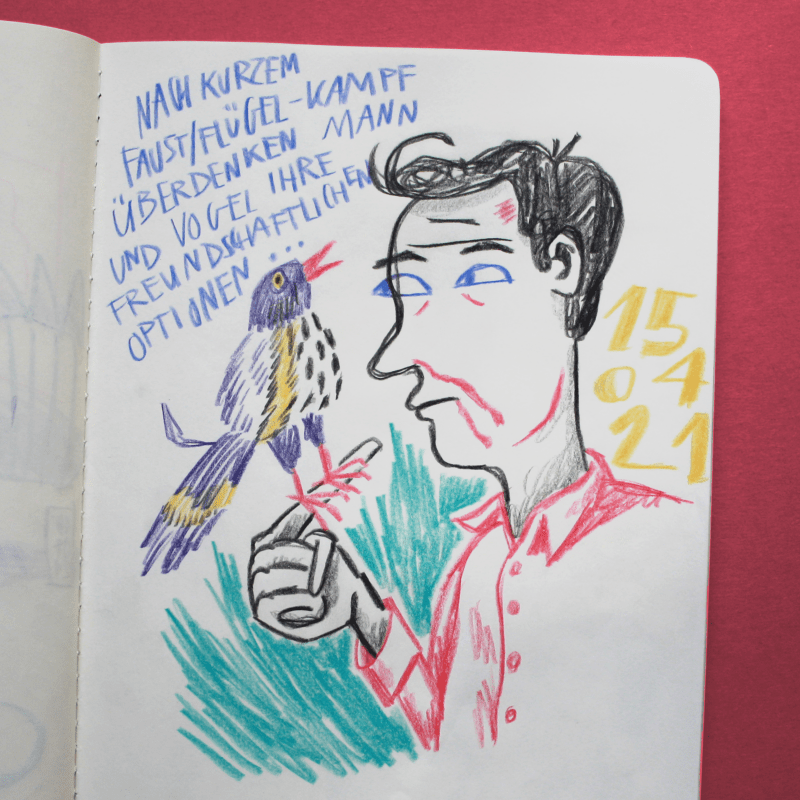 NACH KURZEM
FAUST/FLÜGEL-KAMPF
ÜBERDENKEN MANN
UND VOGEL IHRE
FREUNDSCHAFTLICHEN
OPTIONEN...
15
04
21